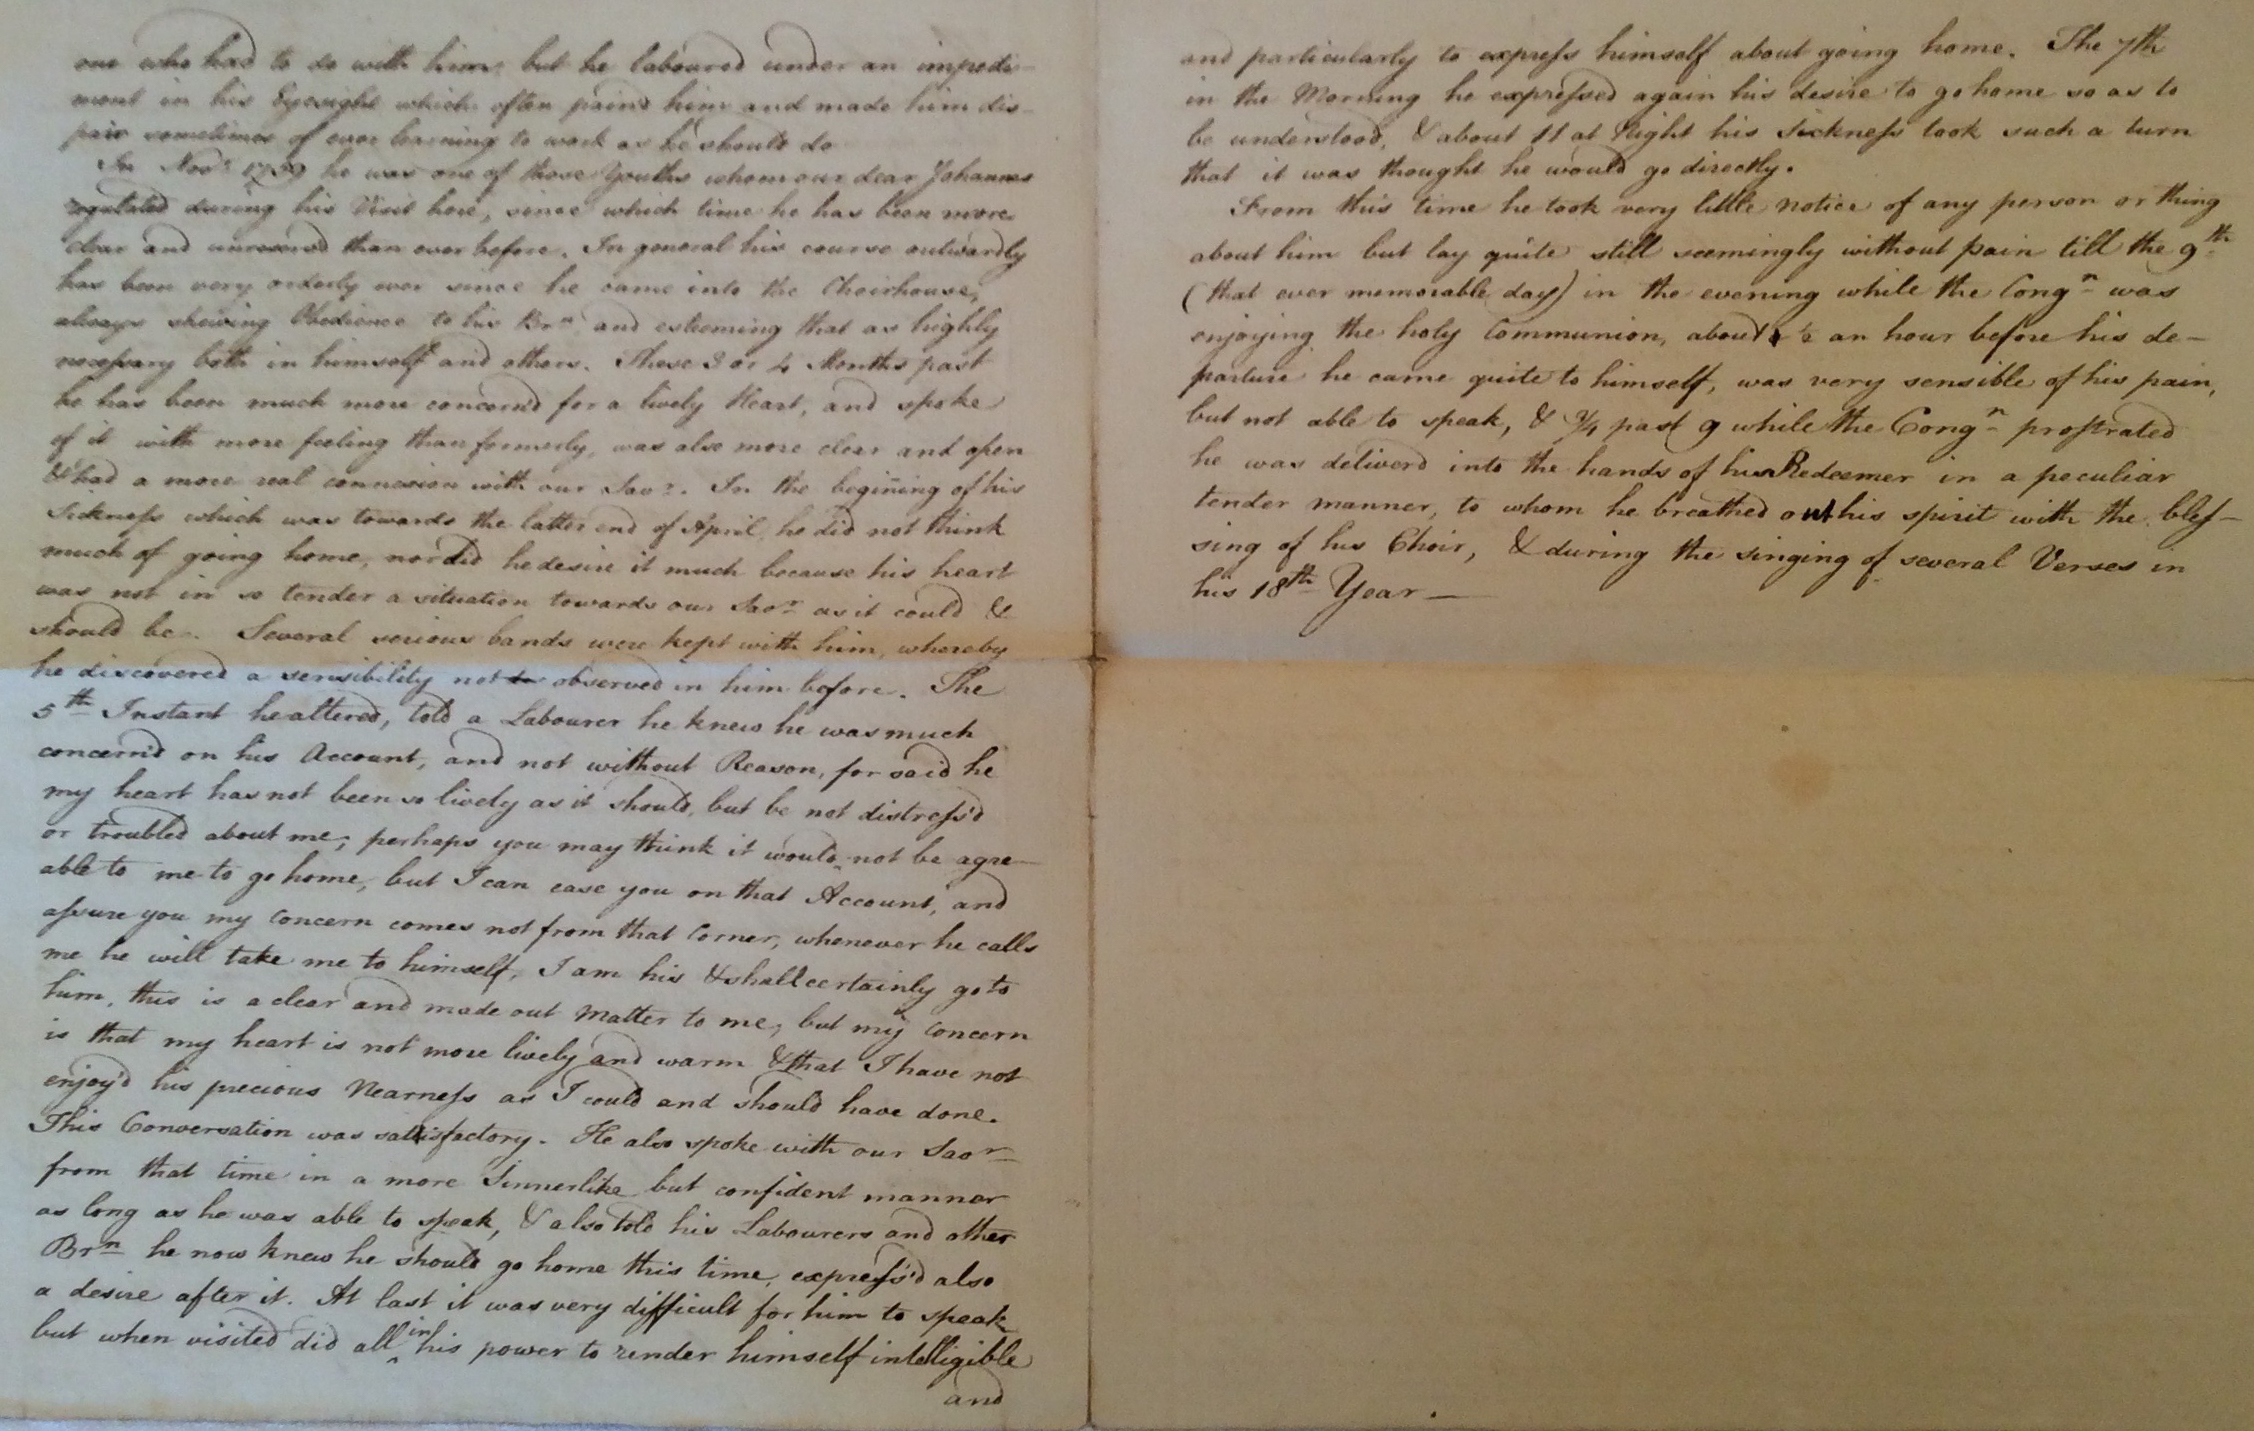 one who had to do with him, but he laboured under an impedi-
ment in his Eyesight which often pain'd him and made him dis-
pair sometimes of ever learning to work as he should do
In Novr. 1759 he was one of those Youths whom our dear Johannes
regulated during his Visit here, since which time he has been more
clear and unreserv'd than ever before. In general his course outwardly
has been very orderly ever since he came into the Choirhouse,
always shewing Obedience to his Brn. and esteeming that as highly
necessary both in himself and others. These 3 or 4 Months past
he has been much more concern'd for a lively Heart, and spoke
of it with more feeling than formerly, was also more clear and open
& had a more real connexion with our Savr. In the begin̄ing of his
Sickness which was towards the latter end of April, he did not think
much of going home, nor did he desire it much because his heart
was not in so tender a situation towards our Savr as it could &
should be. Several serious bands were kept with him, whereby
he discovered a sensibility not observed in him before. The
5th Instant he altered, told a Labourer he knew he was much
concern'd on his Account, and not without Reason, for said he
my heart has not been so lively as it should, but be not distress'd
or troubled about me; perhaps you may think it would not be agre-
able to me to go home, but I can ease you on that Account, and
assure you my Concern comes not from that Corner, whenever he calls
me he will take me to himself, I am his & shall certainly go to
him, this is a clear and made out Matter to me, but my Concern
is that my heart is not more lively and warm & that I have not
enjoy'd his precious Nearness as I could and should have done.
This Conversation was satisfactory. He also spoke with our Savr
from that time in a more Sinnerlike but confident manner
as long as he was able to speak, & also told his Labourers and other
Brn he now knew he should go home this time, express'd also
a desire after it. At last it was very difficult for him to speak
but when visited did all in his power to render himself intelligible
and
and particularly to express himself about going home. The 7th
in the Morning he expressed again his desire to go home so as to
be understood, & about 11 at Night his Sickness took such a turn
that it was thought he would go directly.
From this time he took very little notice of any person or thing
about him but lay quite still seemingly without pain till the 9th
(that ever memorable day) in the evening while the Congn was
enjoying the holy Communion, about ½ an hour before his de-
parture he came quite to himself, was very sensible of his pain,
but not able to speak, & ¾ past 9 while the Congn prostrated
he was deliverd into the hands of his Redeemer in a peculiar
tender manner, to whom he breathed out his spirit with the bles-
sing of his Choir, & during the singing of several Verses in
his 18th Year—